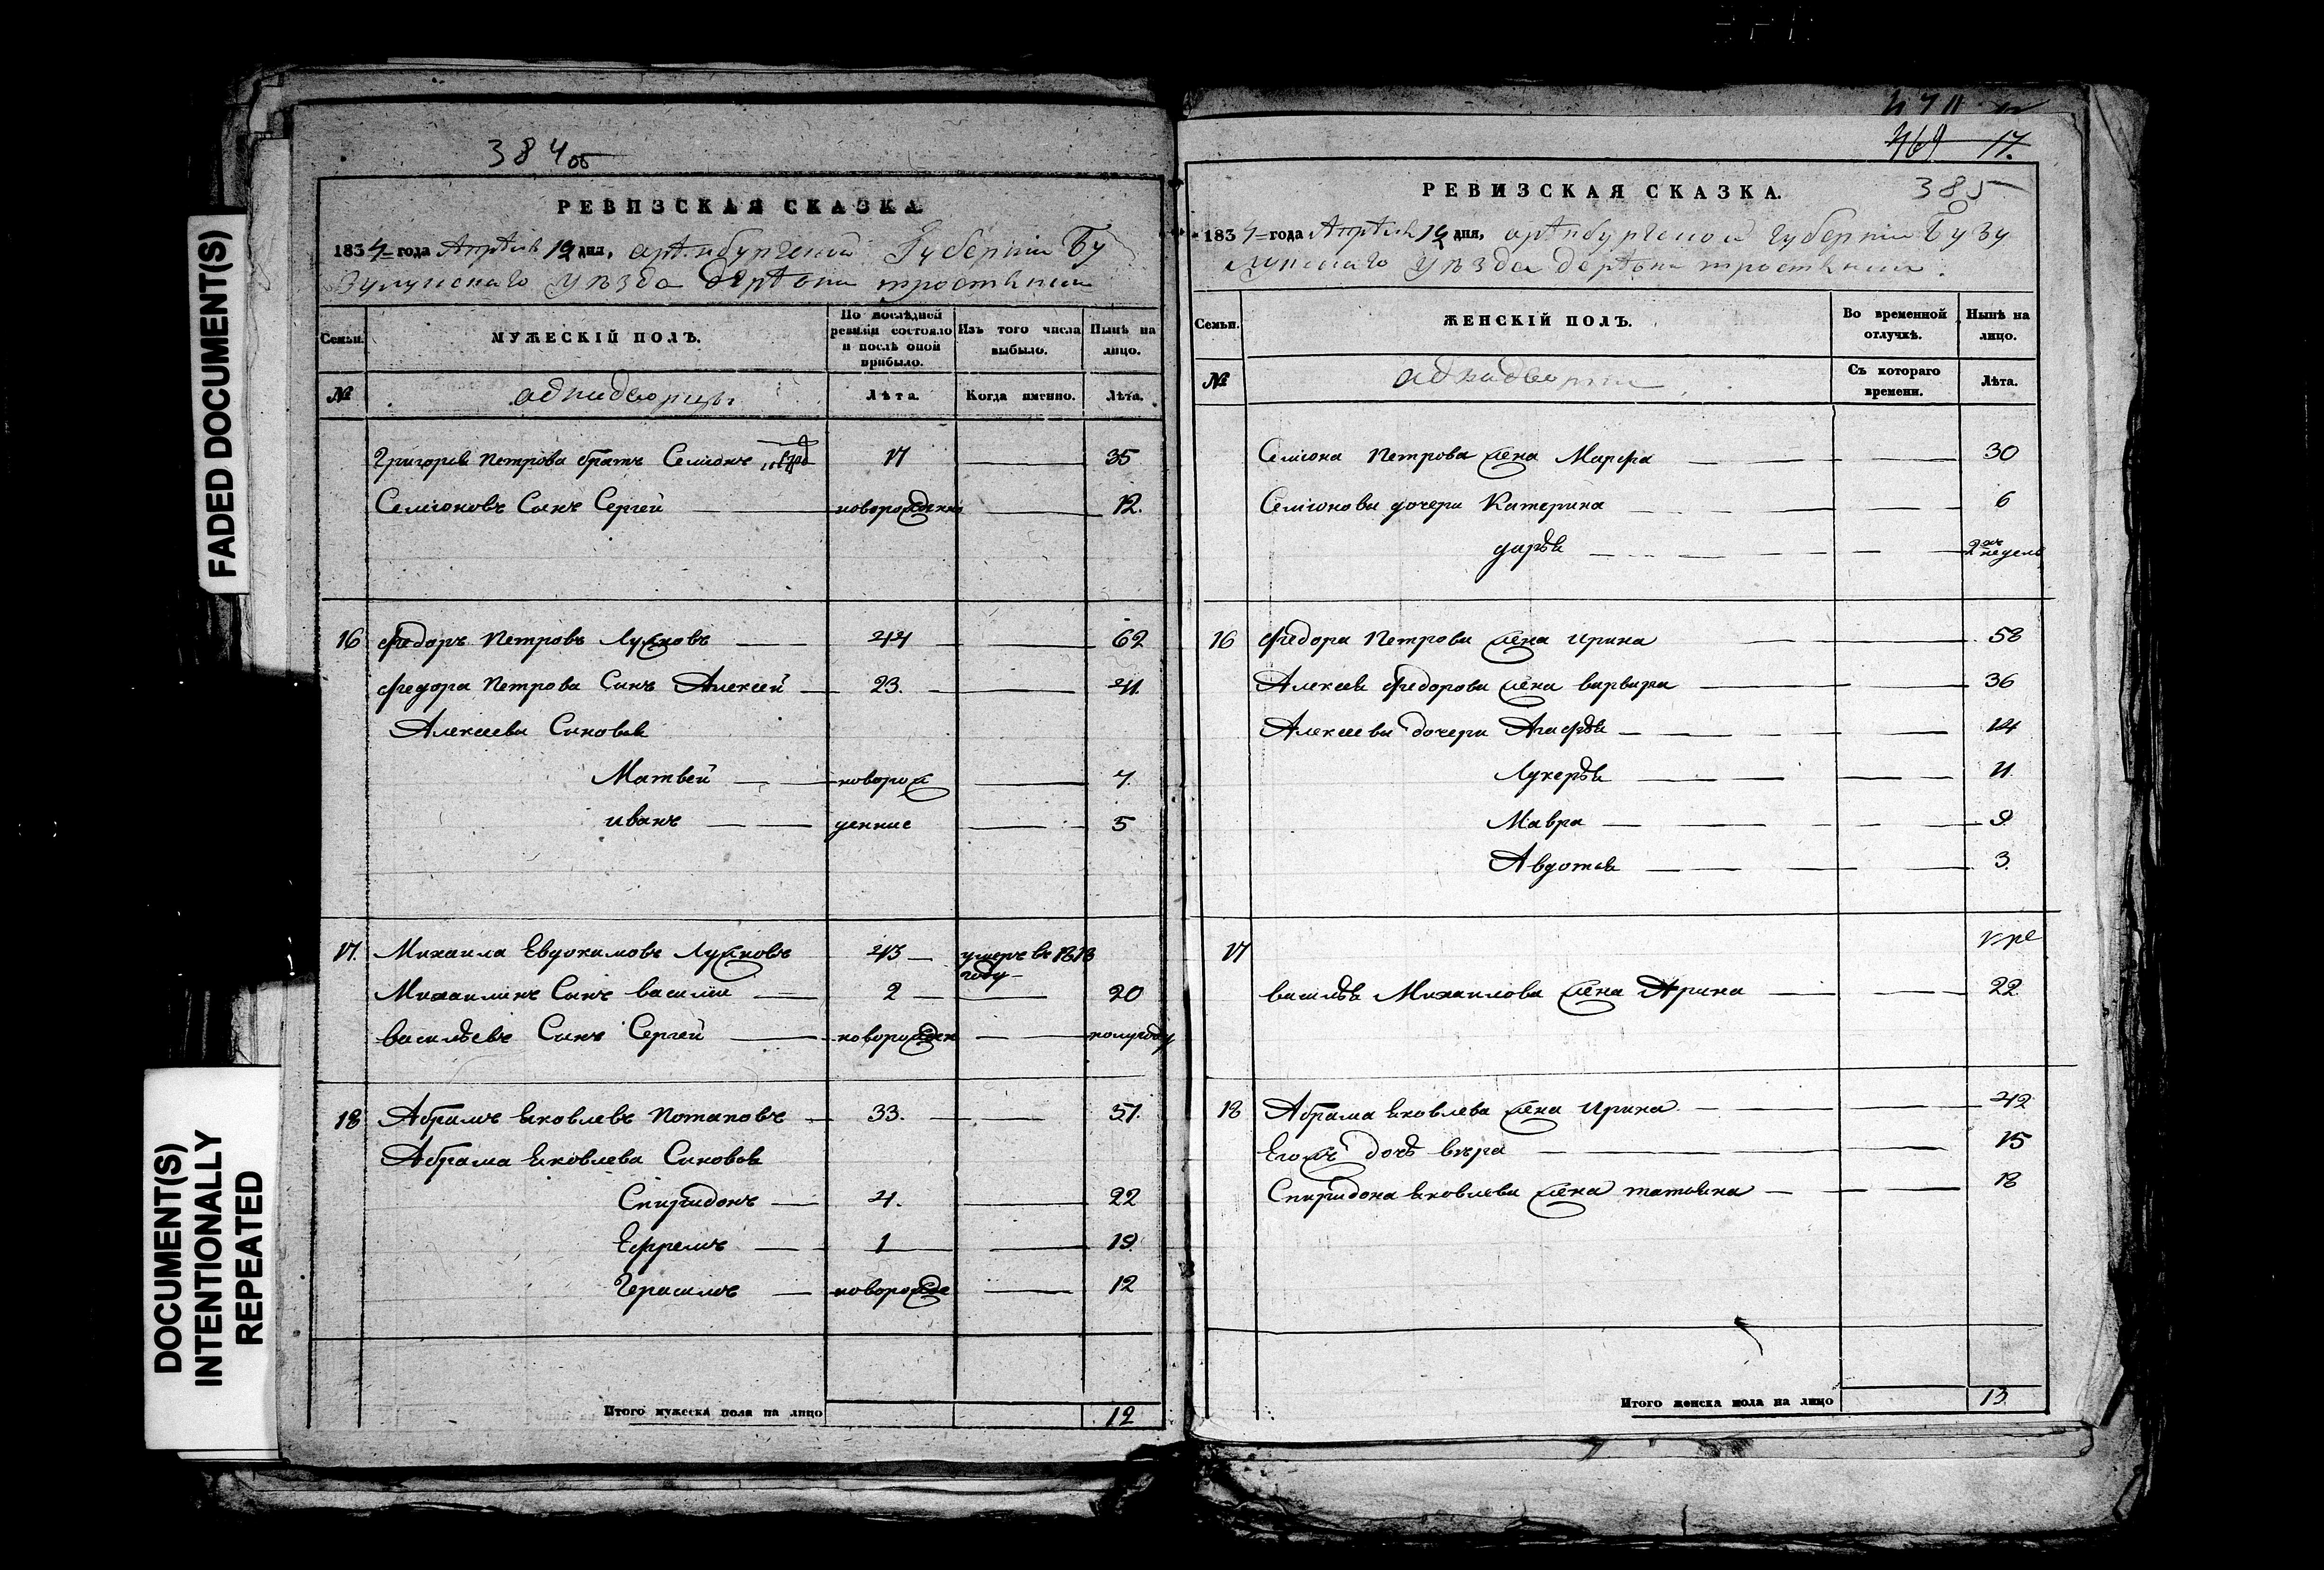 FADED DOCUMENT(S)
DOCUMENT(S)
INTENTIONALLY
REPEATED
384 об
РЕВИЗСКАЯ СКАЗКА
1834 года Апреля 19 дня, Губернии Бу
уезда
Семьи.
МУЖЕСКІЙ ПОЛЪ.
По послѣдней ревизіи состояло и послѣ оной прибыло.
Изъ того числа выбыло.
Нынѣ на лицо.
№
аднидворцы
Лѣта.
Когда именно.
Лѣта.
Григорья Петрова братъ Семионъ 17 35
Семионовъ Сынъ Сергей 12.
16 Федоръ Петровъ 44 62
Федора Петрова Сынъ Алексей 23. 41.
Алексеевы Сыновья
Матвей оворож 7.
иванъ денные 5
17. Михаила Евдокимовъ 43 умеръ въ 1818
году
Михаилинъ Сынъ василий 2 20
васильевъ Сынъ Сергей новорожден полугоду
18 Абрамъ яковлевъ Потаповъ 33. 51.
Абрама яковлева Сыновья
Спиридонъ 4. 22
Ефремъ 1 19.
Герасимъ новорожде 12
Итого мужеска пола на лицо 12
469 17.
385
РЕВИЗСКАЯ СКАЗКА.
1834 года Апреля 19 дня, губернии Бузу
уезда
Семьи.
ЖЕНСКІЙ ПОЛЪ.
Во временной отлучкѣ.
Нынѣ на лицо.
№
Съ котораго времени.
Лѣта.
Семиона Петрова жена Марфа 30
Семионовы дочери Катерина 6
дарья 2 недель
16 Федора Петрова жена ирина 58
Алексея Федорова жена варвара 36
Алексеевы дочери Агафья 14
Лукерья 11.
Мавра 9.
Авдотья 3.
17
василья Михаилова жена Арина 22.
18 Абрама яковлева жена ирина 42
Егожъ дочь вера 15
Спиридона яковлева жена татьяна 18
Итого женска пола на лицо 13.